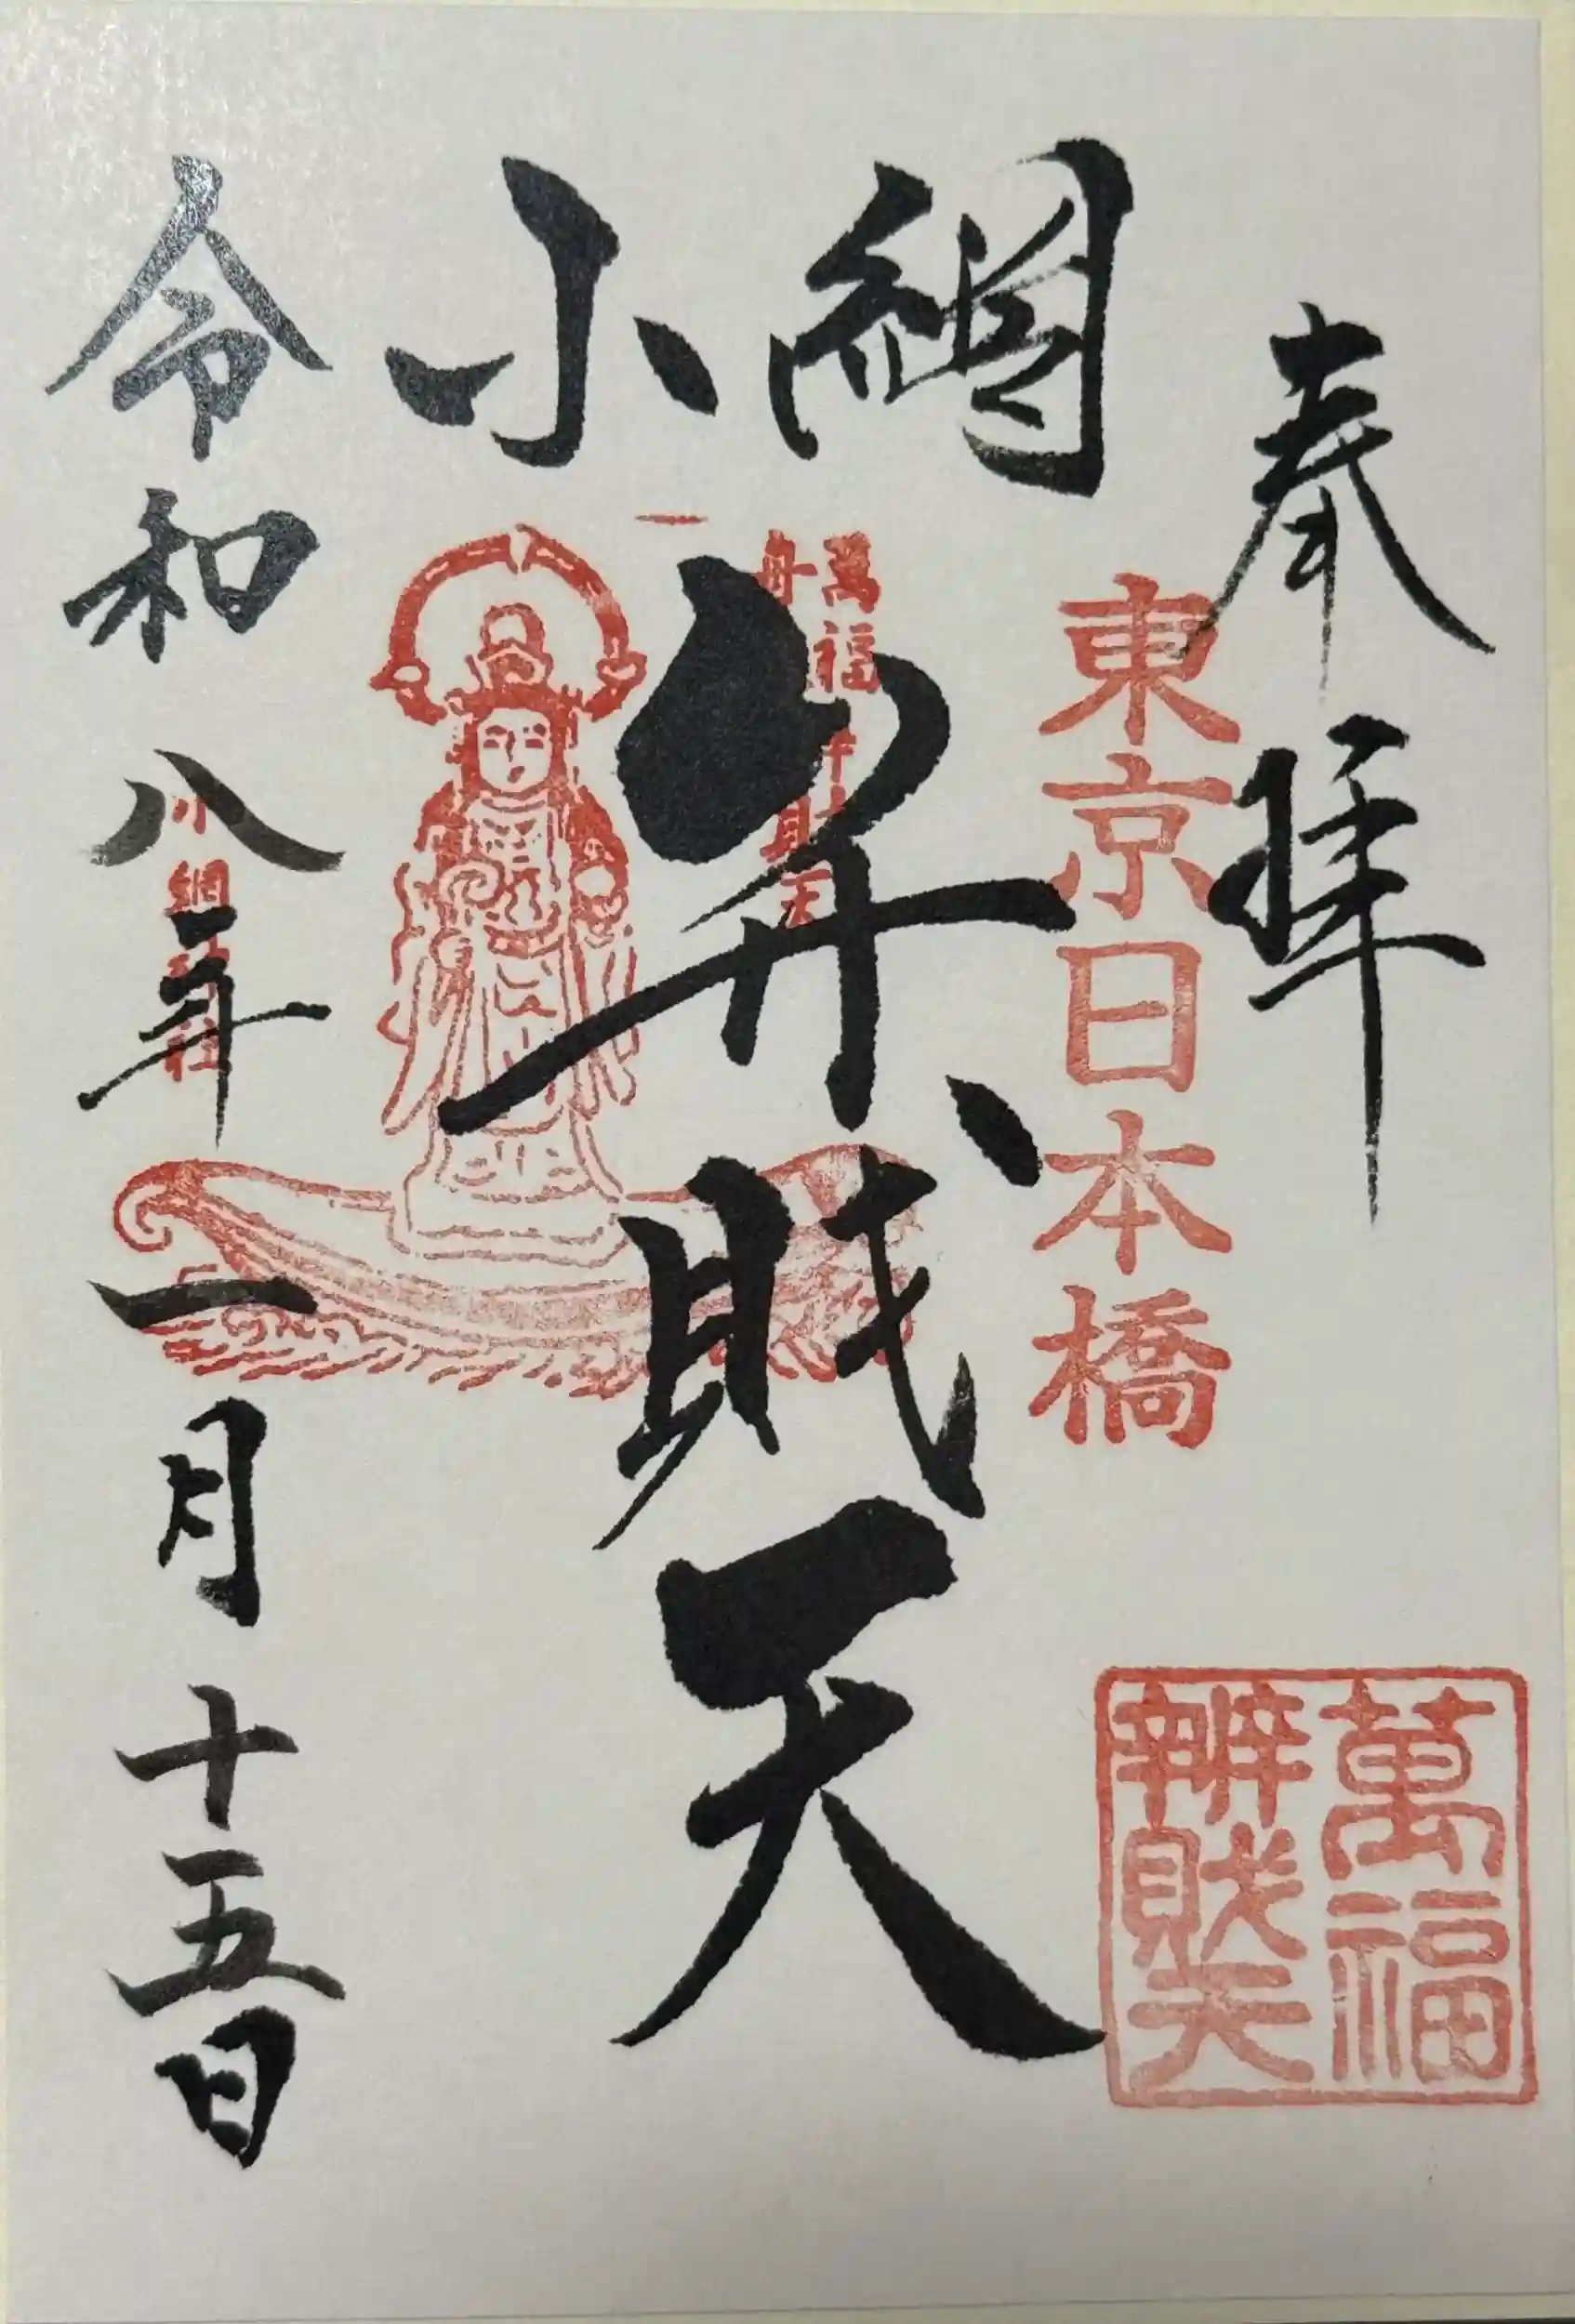 奉拝
東京日本橋
萬福
辨財天
小網
弁財天
萬福
舟
令和八年一月十五日
小網神社